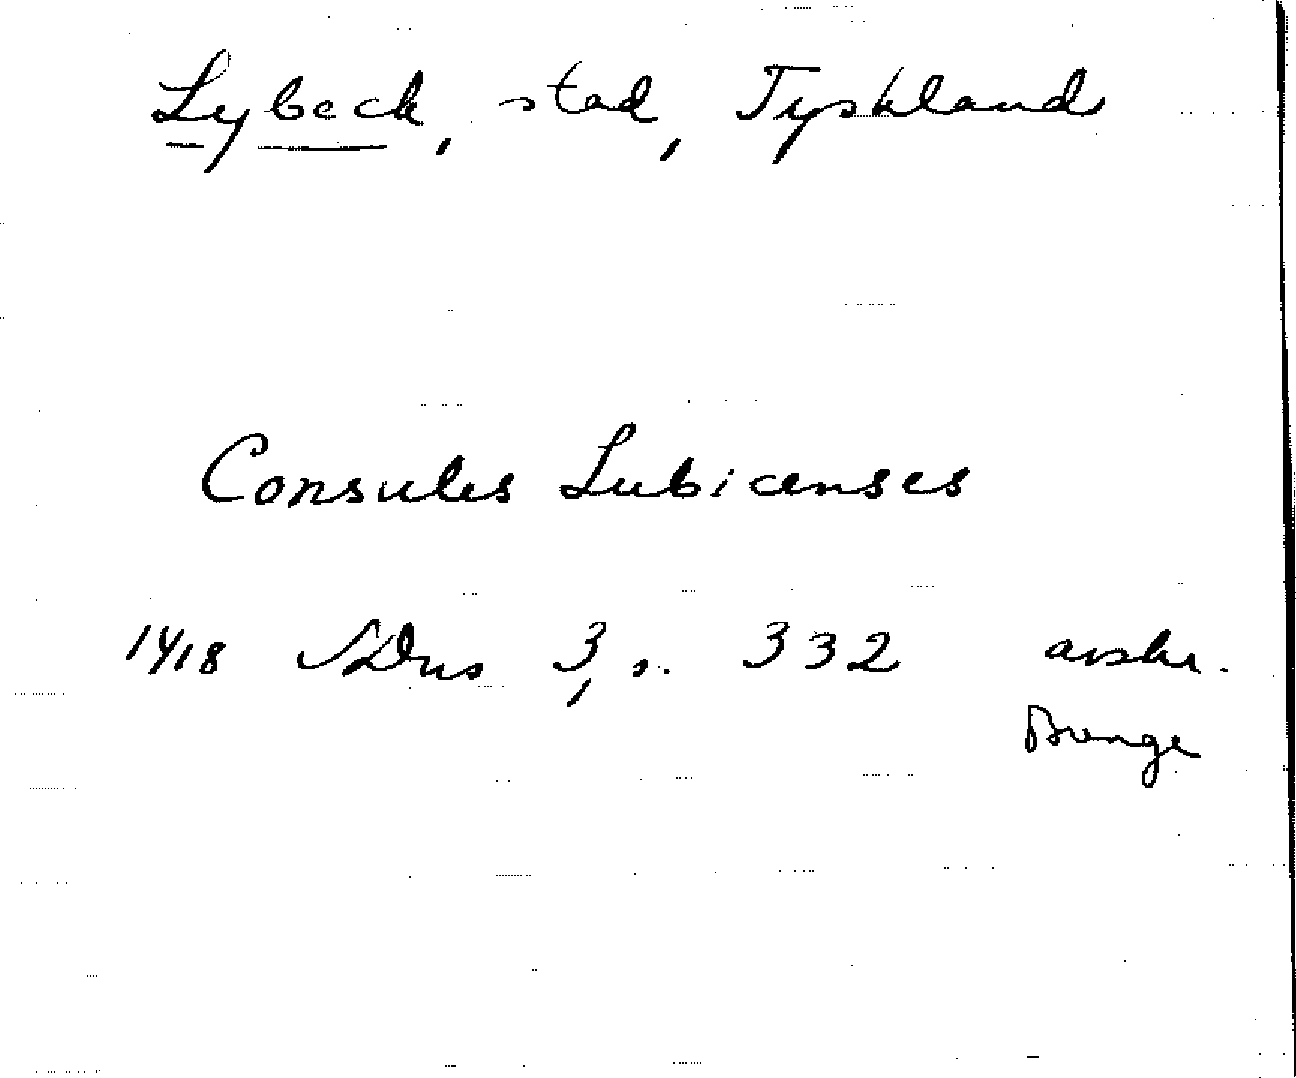 Lybeck, stad, Tyskland
Consules Lubicenses
1418 SDns 3, s. 332 avskr.
Brenge